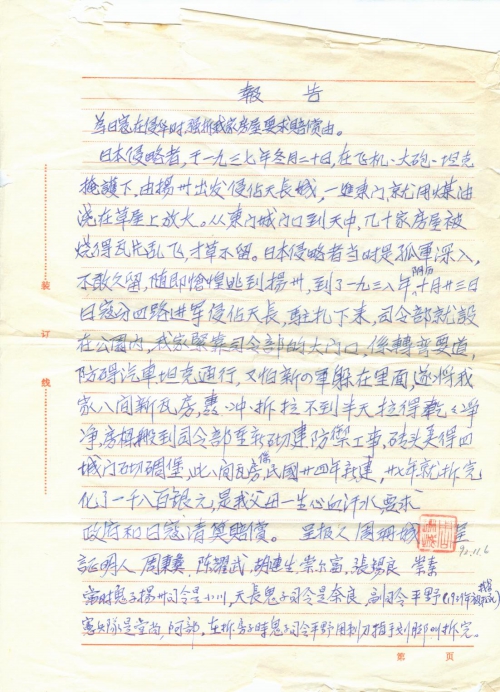 報 告
为日寇在侵华时,强拆我家房屋要求賠償由。
日本侵略者,于一九三七年冬月二十日,在飞机、大砲、坦克
掩護下,由揚州出发侵佔天長城,一進東门,就用煤油
浇在草屋上放火。从東门城门口到天中,几十家房屋被
烧得瓦片乱飞,寸草不留。日本侵略者当时是孤軍深入,
不敢久留,随即倉惶逃到揚州,到了一九三八年阴历十月廿三日
日寇分四路进军侵佔天長,駐扎下来,司令部就設
在公園内,我家緊靠司令部的大门口,係轉弯要道,
防碍汽車坦克通行,又怕新四軍躲在里面,遂将我
家八间新瓦房,冲、拆、拉不到半天拉得乾乾净
净,房樑搬到司令部去砌建防禦工事,砖头弄得四
城门砌碉堡,此八间瓦房係民國廿四年我建,廿七年就拆完
化了一千八百银元,是我父母一生心血汗水,要求
政府和日寇清算賠償。 呈报人 周珊城 呈
92.11.6
証明人 周 陈耀武、胡連生、崇尔富、張錫良 崇
當时鬼子揚州司令是小川,天長鬼子司令是奈良,副司令平野(1939年
憲兵隊是堂岗,阿部,在拆房子時鬼子司令平野用刺刀指手划脚叫拆完。
装
订
线
第 页